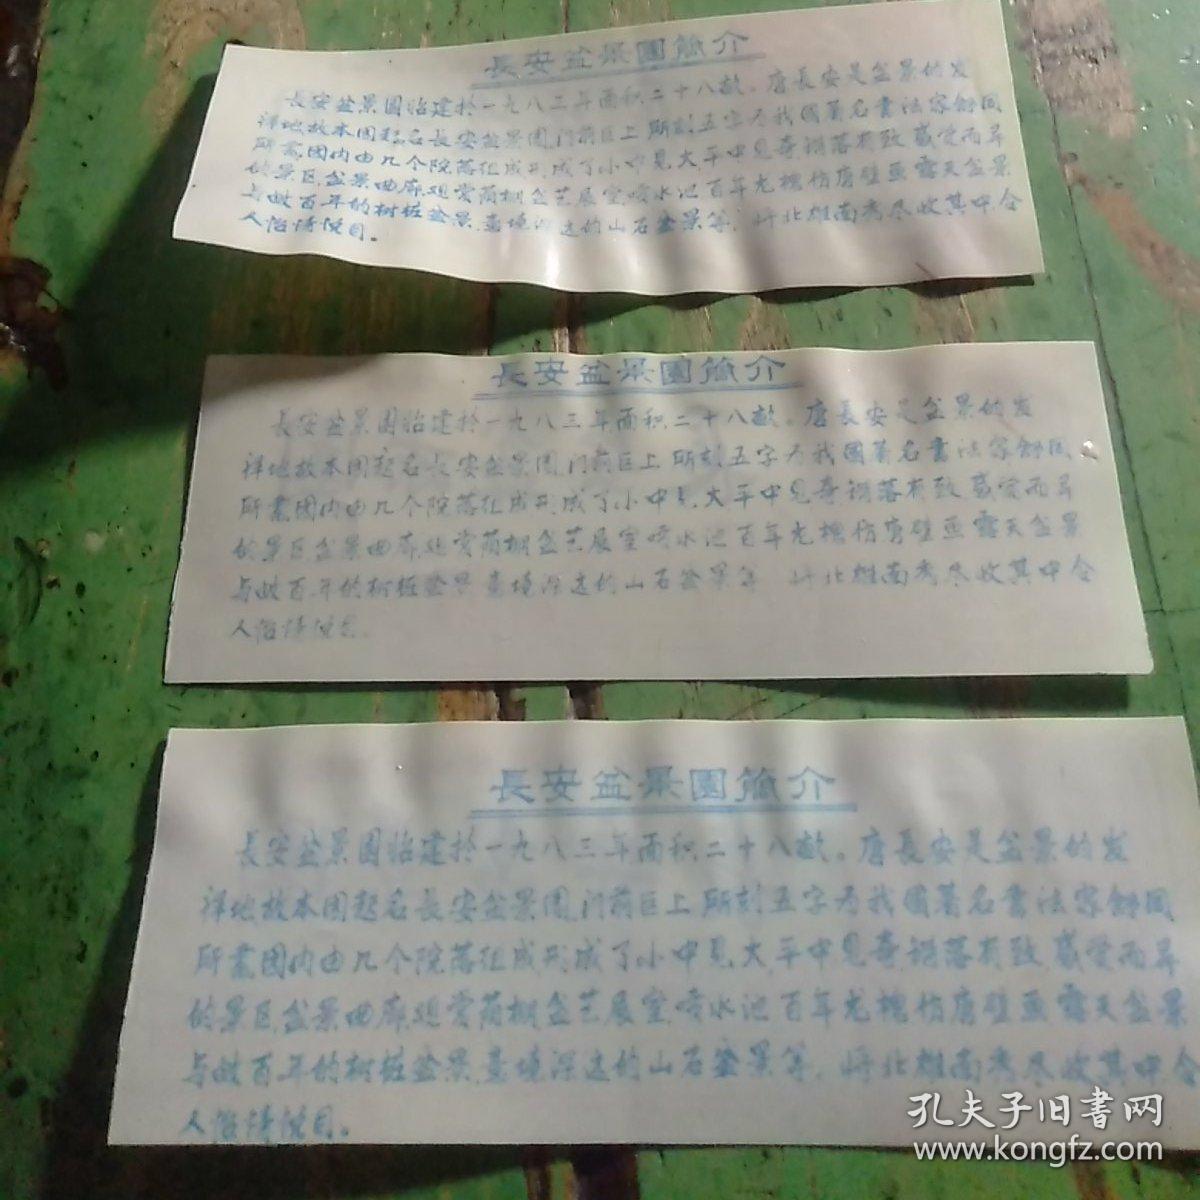 長安盆景園簡介
長安盆景园始建於一九八三年面积二十八畝。唐長安是盆景的发
祥地故本园起名長安盆景园,门前巨上所刻五字为我國著名書法家舒同
所書园内由几个院落组成形成了小中见大平中见奇错落有致感觉而异
的景区盆景曲廊观赏荫棚盆艺展室喷水池百年龙槐仿唐壁画露天盆景
与数百年的树桩盆景,意境深远的山石盆景等,将北雄南秀尽收其中令
人怡情悦目。
長安盆景園簡介
長安盆景园始建於一九八三年面积二十八畝。唐長安是盆景的发
祥地故本园起名長安盆景园,门前巨上所刻五字为我國著名書法家舒同
所書园内由几个院落组成形成了小中见大平中见奇错落有致感觉而异
的景区盆景曲廊观赏荫棚盆艺展室喷水池百年龙槐仿唐壁画露天盆景
与数百年的树桩盆景意境深远的山石盆景等 将北雄南秀尽收其中令
人怡情悦目.
長安盆景園簡介
長安盆景园始建於一九八三年面积二十八畝。唐長安是盆景的发
祥地故本园起名長安盆景园,门前巨上所刻五字为我國著名書法家舒同
所書园内由几个院落组成形成了小中见大,平中见奇错落有致,感觉而异
的景区,盆景曲廊,观赏荫棚盆艺展室,喷水池百年龙槐仿唐壁画露天盆景
与数百年的树桩盆景,意境深远的山石盆景等,将北雄南秀尽收其中令
人怡情悦目。
孔夫子旧書网
www.kongfz.com